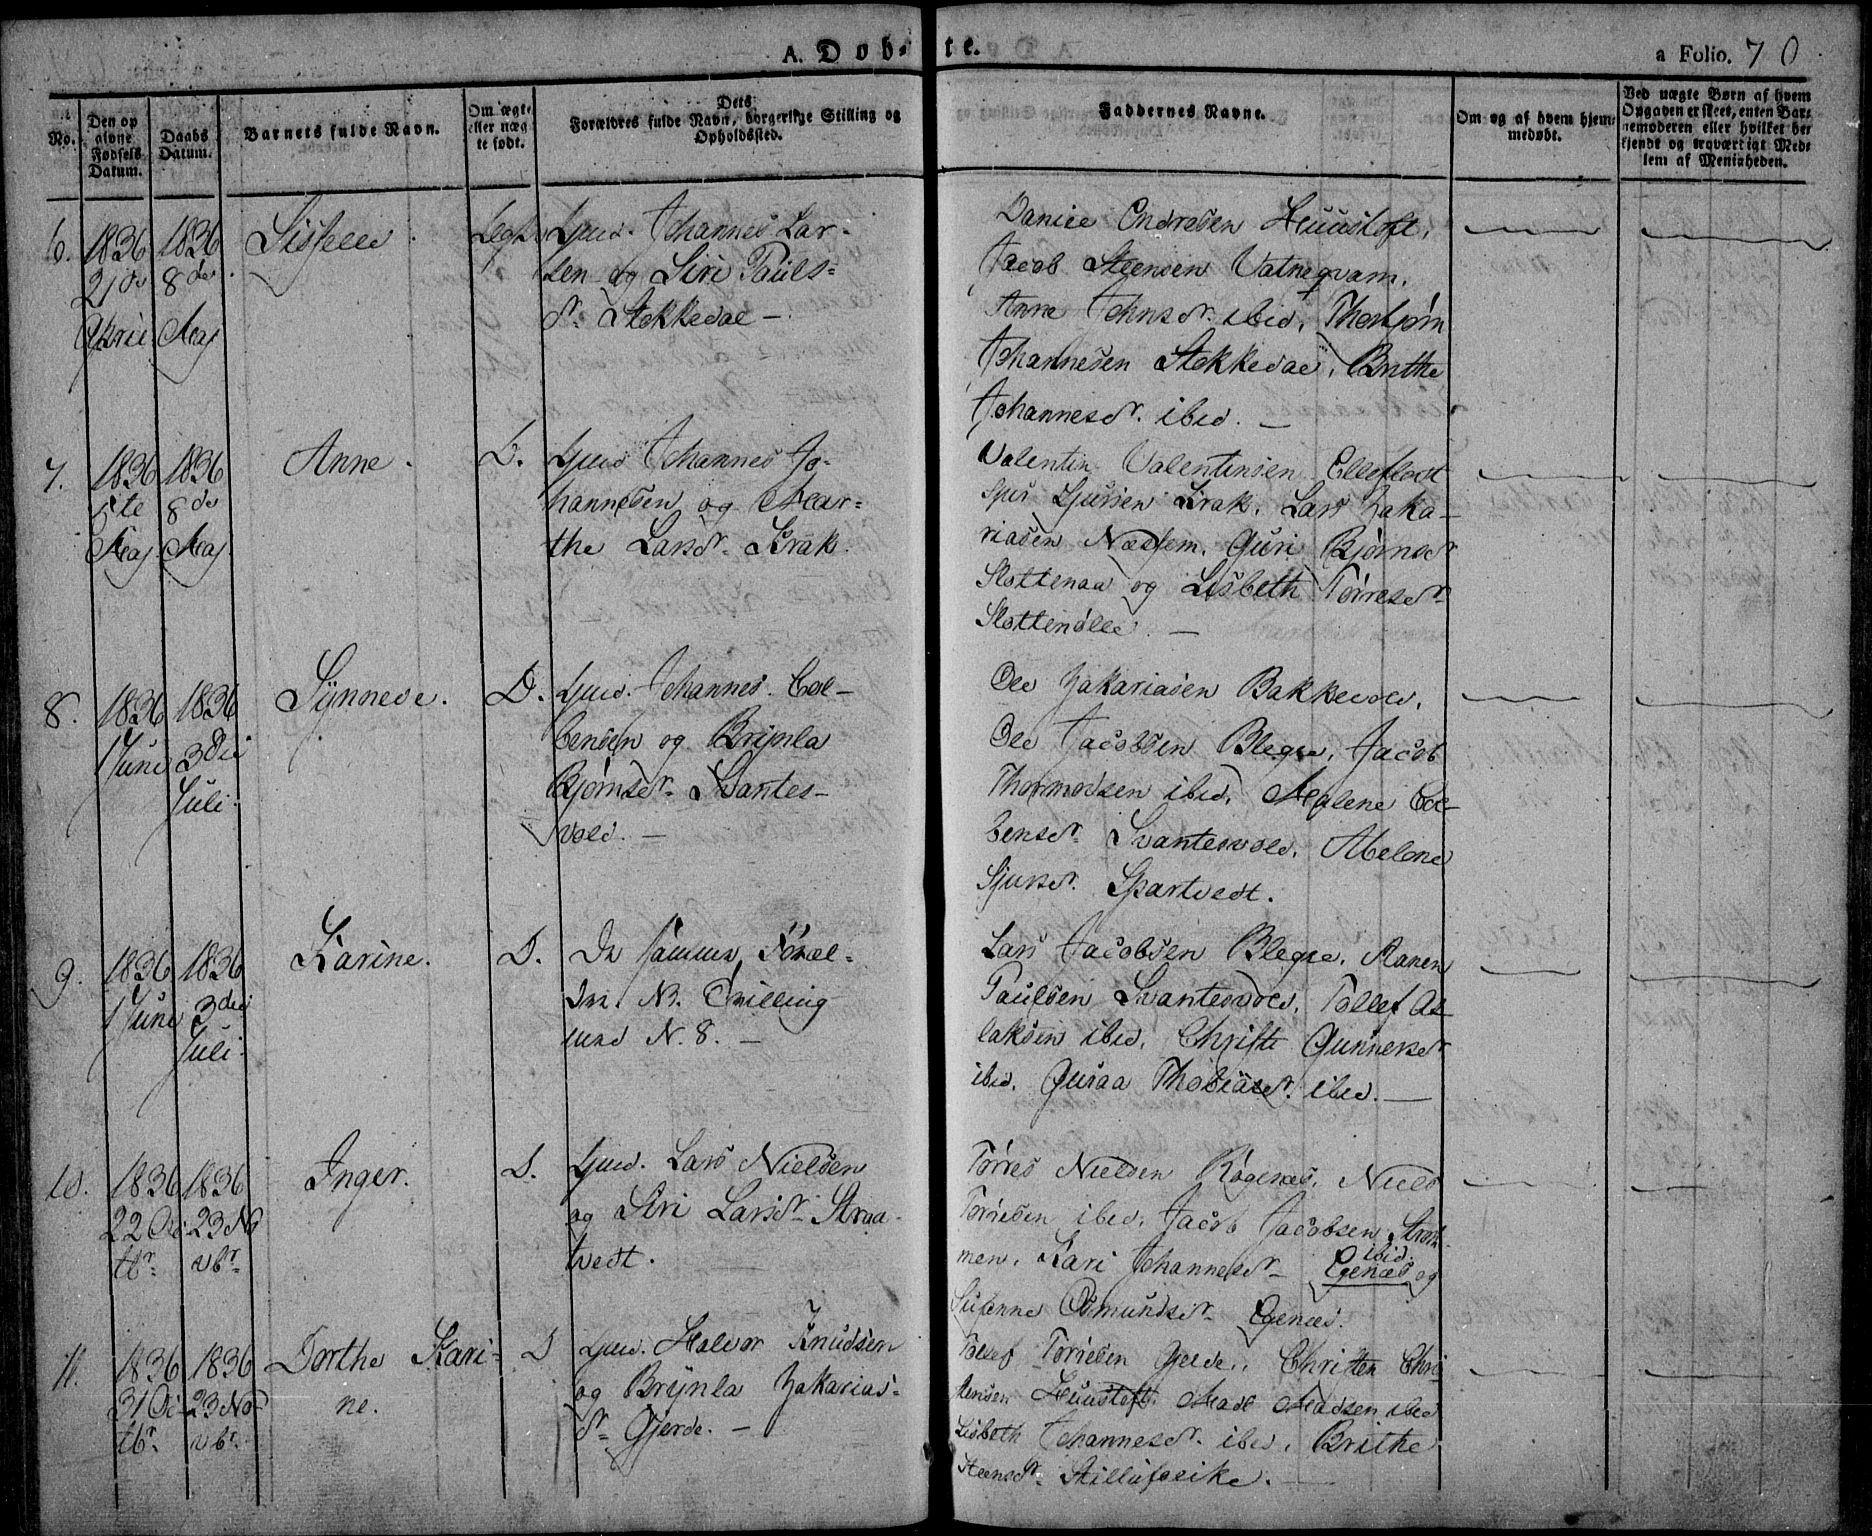 A. Døb-
te.
a Folio. 70
No.
Den op
givne
Fødsels
Datum.
Daabs
Datum.
Barnets fulde Navn.
Om ægte
eller uæg
te født.
Dets
Forældres fulde Navn, borgerlige Stilling og
Opholdssted.
Faddernes Navne.
Om og af hvem hjem-
medøbt.
Ved uægte Børn af hvem
Opgaven er skeet, enten Bar-
nemoderen eller hvilket be
kjendt og troværdigt Med-
lem af Menigheden.
6.
1836
21de
April
1836
8de
Maj
Sisselle
Ægte
Gmd. Johannes Lar-
sen og Siri Pouls-
dr. Stokkedal -
Daniel Endresen Huustoft,
Jacob Steensen Vatneqvam,
Anne Johnsdr. ibid, Thorbjørn
Johannesen Stokkedal, Brithe
Johannesdr. ibid. -
7.
1836
Maj
1836
8de
Maj
Anne.
D.
Gmd Johannes Jo-
hannesen og Mar-
the Larsdr. Krak.
Valentin Valentinsen Elleflodt
Sjur Sjursen Krak, Lars Zaka-
riasen Næssem, Guri Bjørnsdr
Slottenaa og Lisbeth Tørresdr.
Slottenølle. -
8.
1836
1 Juni
1836
3die
Juli.
Synneve.
D.
Gmd. Johannes Col-
bensen og Brynla
Bjørnsdr. Svantes-
vold. -
Ole Zakariasen Bakkevold,
Ole Jacobsen Blegse, Jacob
Thormodsen ibid, Malene Col-
bensdr. Svantesvold, Abelone
Sjursdr. Spartvedt.
9.
1836
1 Juni
1836
3die
Juli.
Karine.
D.
De samme Foræl-
dre. NB. Tvilling
med N. 8. -
Lars Jacobsen Blegse, Maren
Paulsen Svantesvold, Tollef As-
laksen ibid, Christi Gunnersdr
ibid, Guraa Thobiasdr. ibid. -
10.
1836
22 Oc-
tbr.
1836
23 No
vbr.
Inger.
D.
Gmd. Lars Nielsen
og Siri Larsdr. Straa-
tvedt.
Tørres Nielsen Røgenæs, Niels
Tørresen ibid, Jacob Jacobsen Strøm-
men, Kari Johannesdr. Egenæs og
ibid.
Susanne Osmundsdr. Egenæs.
11.
1836
31 Oc-
tbr.
1836
23 No-
vbr.
Dorthe Kari-
ne.
D
Gmd. Halvor Knudsen
og Brynla Zakarias-
dr. Gjerde. -
Tollef Tørresen Gjerde, Christen Chri
stensen Huustoft, Mads Madsen ibid
Lisbeth Johannesdr. ibid, Brithe
Steensdr. Stillufseike. -